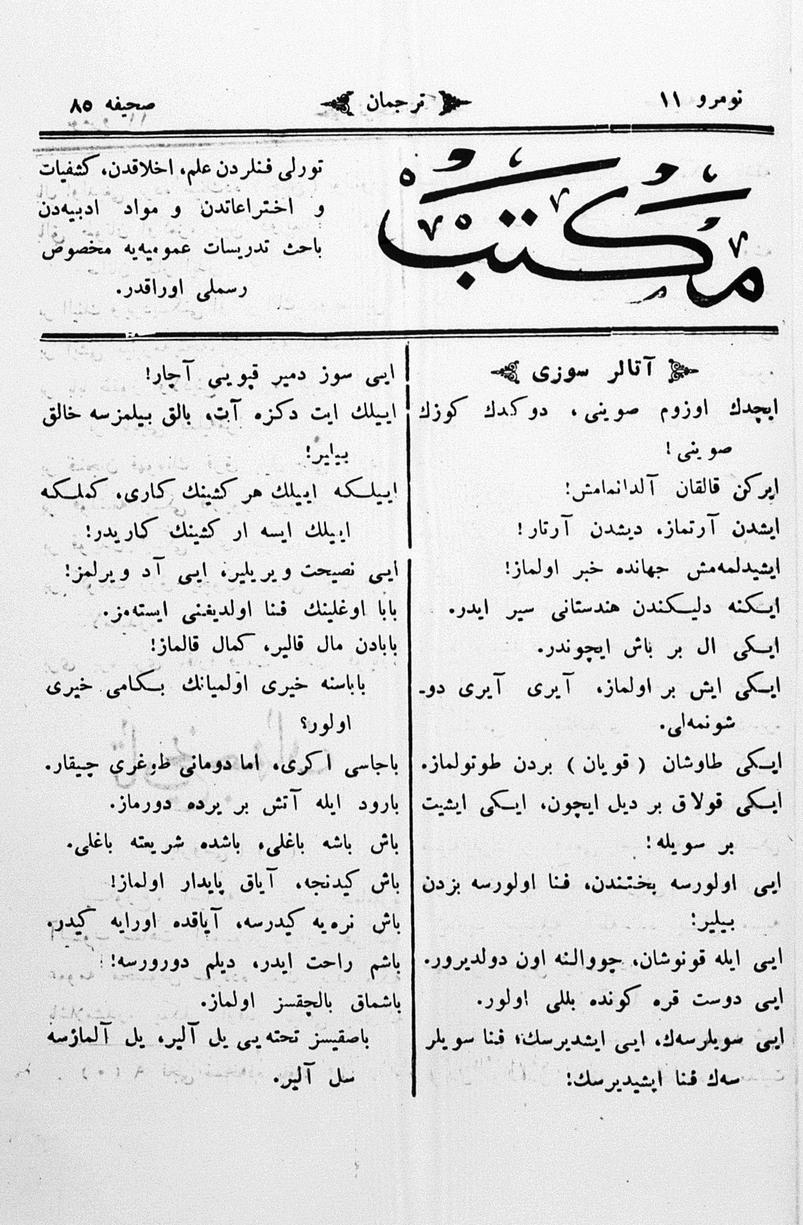 نومرو ١١
ترجمان
صحیفه ٨٥
مكتب
تورلی فنلردن علم، اخلاقدن، كشفیات
و اختراعاتدن و مواد ادبیه‌دن
باحث تدریسات عمومیه‌یه مخصوص
رسملی اوراقدر.
آتالر سوزی
ایچدك اوزوم صوینی، دوكدك كوزك
صوینی!
ایركن قالقان آلدانمامش!
ایشدن آرتماز، دیشدن آرتار!
ایشیدلمه‌مش جهانده خبر اولماز!
ایكنه دلیكندن هندستانی سیر ایدر.
ایكی ال بر باش ایچوندر.
ایكی ایش بر اولماز، آیری آیری دو-
شونمه‌لی.
ایكی طاوشان (قویان) بردن طوتولماز.
ایكی قولاق بر دیل ایچون، ایكی ایشیت
بر سویله!
ایی اولورسه بختندن، فنا اولورسه بزدن
بیلیر!
ایی ایله قونوشان، چووالنه اون دولدیرور.
ایی دوست قره كونده بللی اولور.
ایی سویلرسه‌ك، ایی ایشدیرسك؛ فنا سویلر
سه‌ك فنا ایشیدیرسك!
ایی سوز دمیر قپویی آچار!
اییلك ایت دكزه آت، بالق بیلمزسه خالق
بیلیر!
اییلكه اییلك هر كشینك كاری، كملكه
اییلك ایسه ار كشینك كاریدر!
ایی نصیحت ویریلیر، ایی آد ویرلمز!
بابا اوغلینك فنا اولدیغنی ایسته‌مز.
بابادن مال قالیر، كمال قالماز!
باباسنه خیری اولمیانك بكامی خیری
اولور؟
باجاسی اكری، اما دومانی طوغری چیقار.
بارود ایله آتش بر یرده دورماز.
باش باشه باغلی، باشده شریعته باغلی.
باش كیدنجه، آیاق پایدار اولماز!
باش نره‌یه كیدرسه، آیاقده اورایه كیدر.
باشم راحت ایدر، دیلم دورورسه!
باشماق بالچقسز اولماز.
باصقیسز تخته‌یی یل آلیر، یل آلمازسه
سل آلیر.